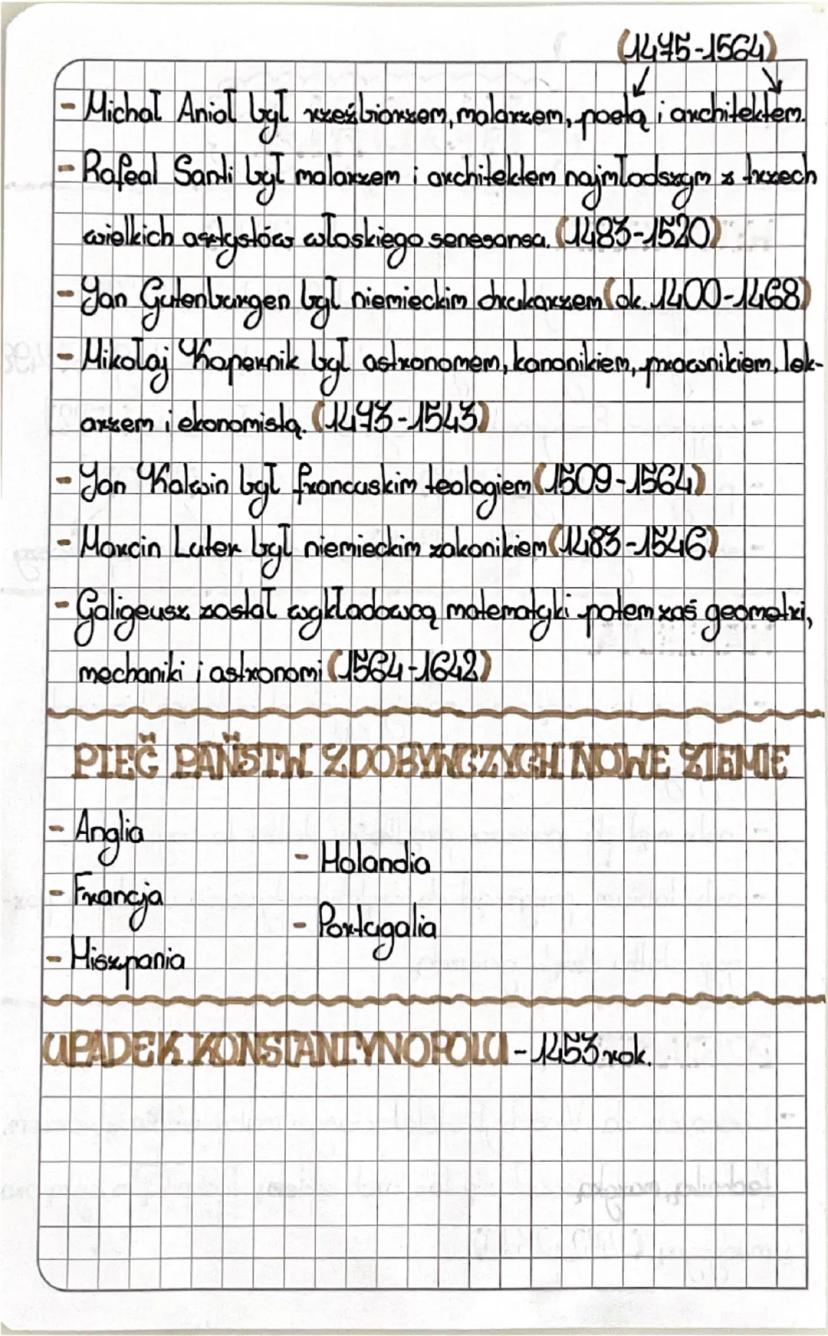 (1475-1564)
- Michał Anioł był rzeźbiarzem, malarzem, poetą i architektem.
- Rafeal Santi był malarzem i architektem najmłodszym z trzech
wielkich artystów włoskiego renesansa. (1483-1520)
- Jan Gutenbergen był niemieckim drukarzem (ok. 1400-1468)
- Mikołaj Kopernik był astronomem, kanonikiem, prawnikiem, lek-
arzem i ekonomistą. (1473-1543)
- Jan Kalwin był francuskim teologiem (1509-1564)
- Marcin Luter był niemieckim zakonikiem (1483-1546)
- Galigeusz został wykładowcą matematyki potem zaś geometri,
mechaniki i astronomi (1564-1642)
PIĘĆ PAŃSTW ZDOBYWCZYCH NOWE ZIEMIE
- Anglia
- Holandia
- Francja
- Portugalia
- Hiszpania
UPADEK KONSTANTYNOPOLU - 1453 rok.